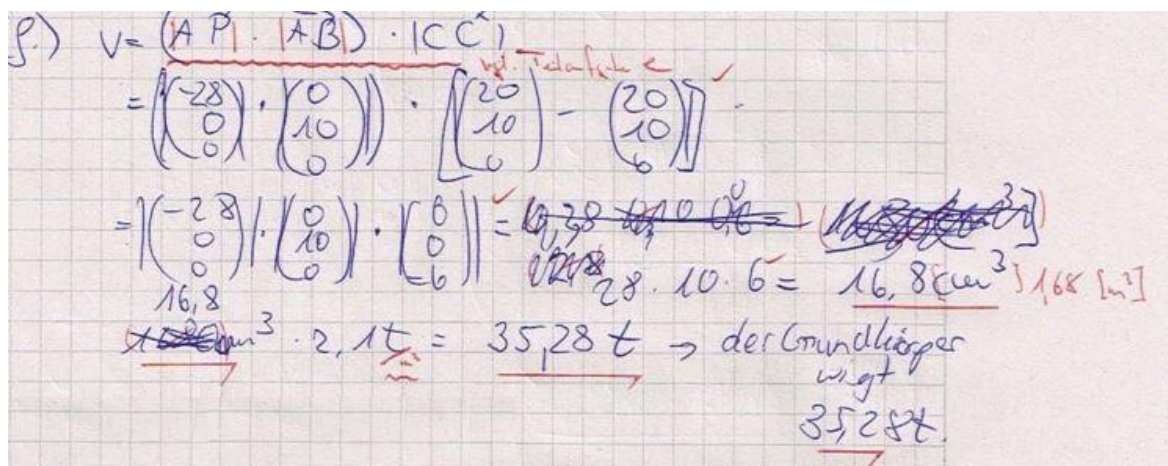 f.) V = (|AP| · |AB|) · |CC'|
vgl. Teilaufgabe e ✓
= (|(-28 0 0)| · |(0 10 0)|) · [(20 10 0) - (20 10 6)]
= |(-28 0 0)| · |(0 10 0)| · |(0 0 -6)| ✓ =
28 · 10 · 6 = ✓ 16,8 [cm³] 1,68 [m³]
16,8
m³ · 2,1t = 35,28 t → der Grundkörper
wigt
35,28t.